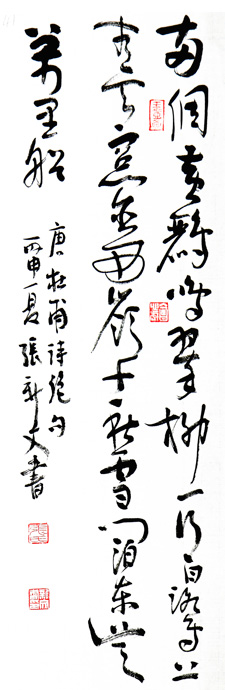 兩個黄鸝鳴翠柳一行白鷺上
青天窓含西嶺千秋雪门泊東吴
萬里船
唐杜甫詩絶句
丙申夏張新文書